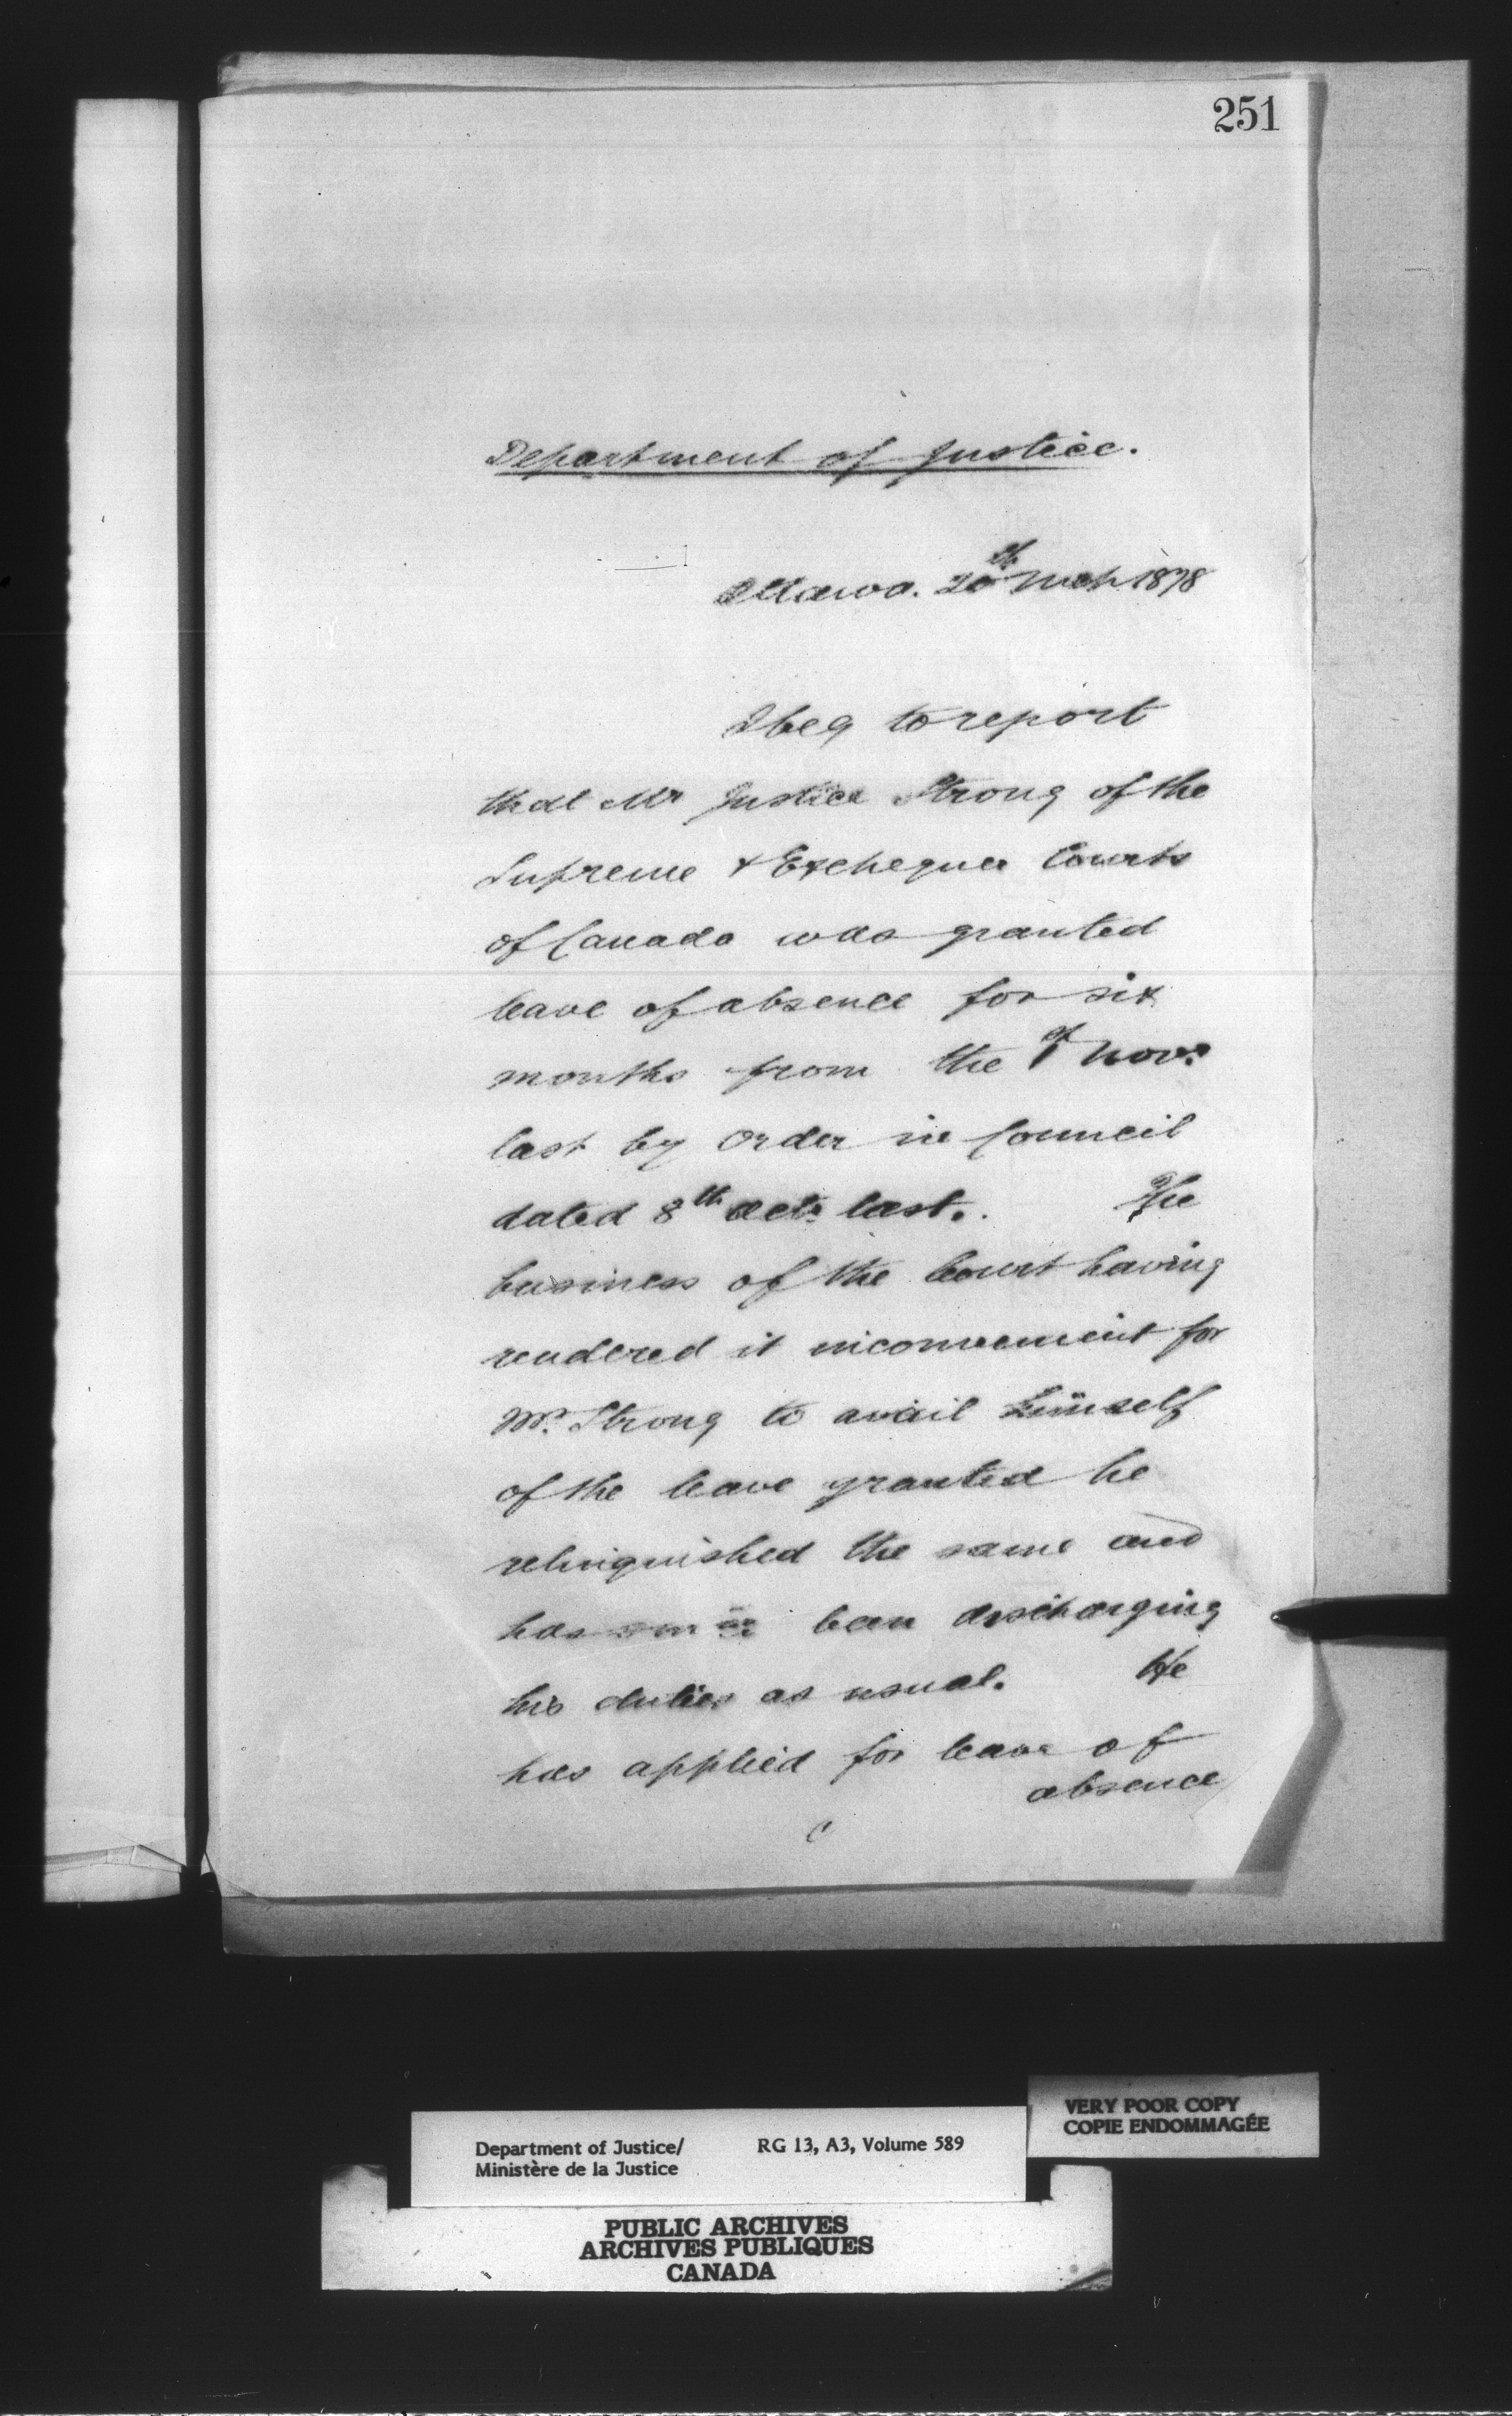 251
Department of Justice.
Ottawa. 20th Mch 1878
I beg to report
that Mr Justice Strong of the
Supreme & Exchequer Courts
of Canada was granted
leave of absence for six
months from the 1st Novr
last by Order in Council
dated 8th Octr last. The
business of the Court having
rendered it inconvenient for
Mr. Strong to avail himself
of the leave granted he
relinquished the same and
has since been discharging
his duties as usual. He
has applied for leave of
absence
VERY POOR COPY
COPIE ENDOMMAGÉE
Department of Justice/ RG 13, A3, Volume 589
Ministère de la Justice
PUBLIC ARCHIVES
ARCHIVES PUBLIQUES
CANADA